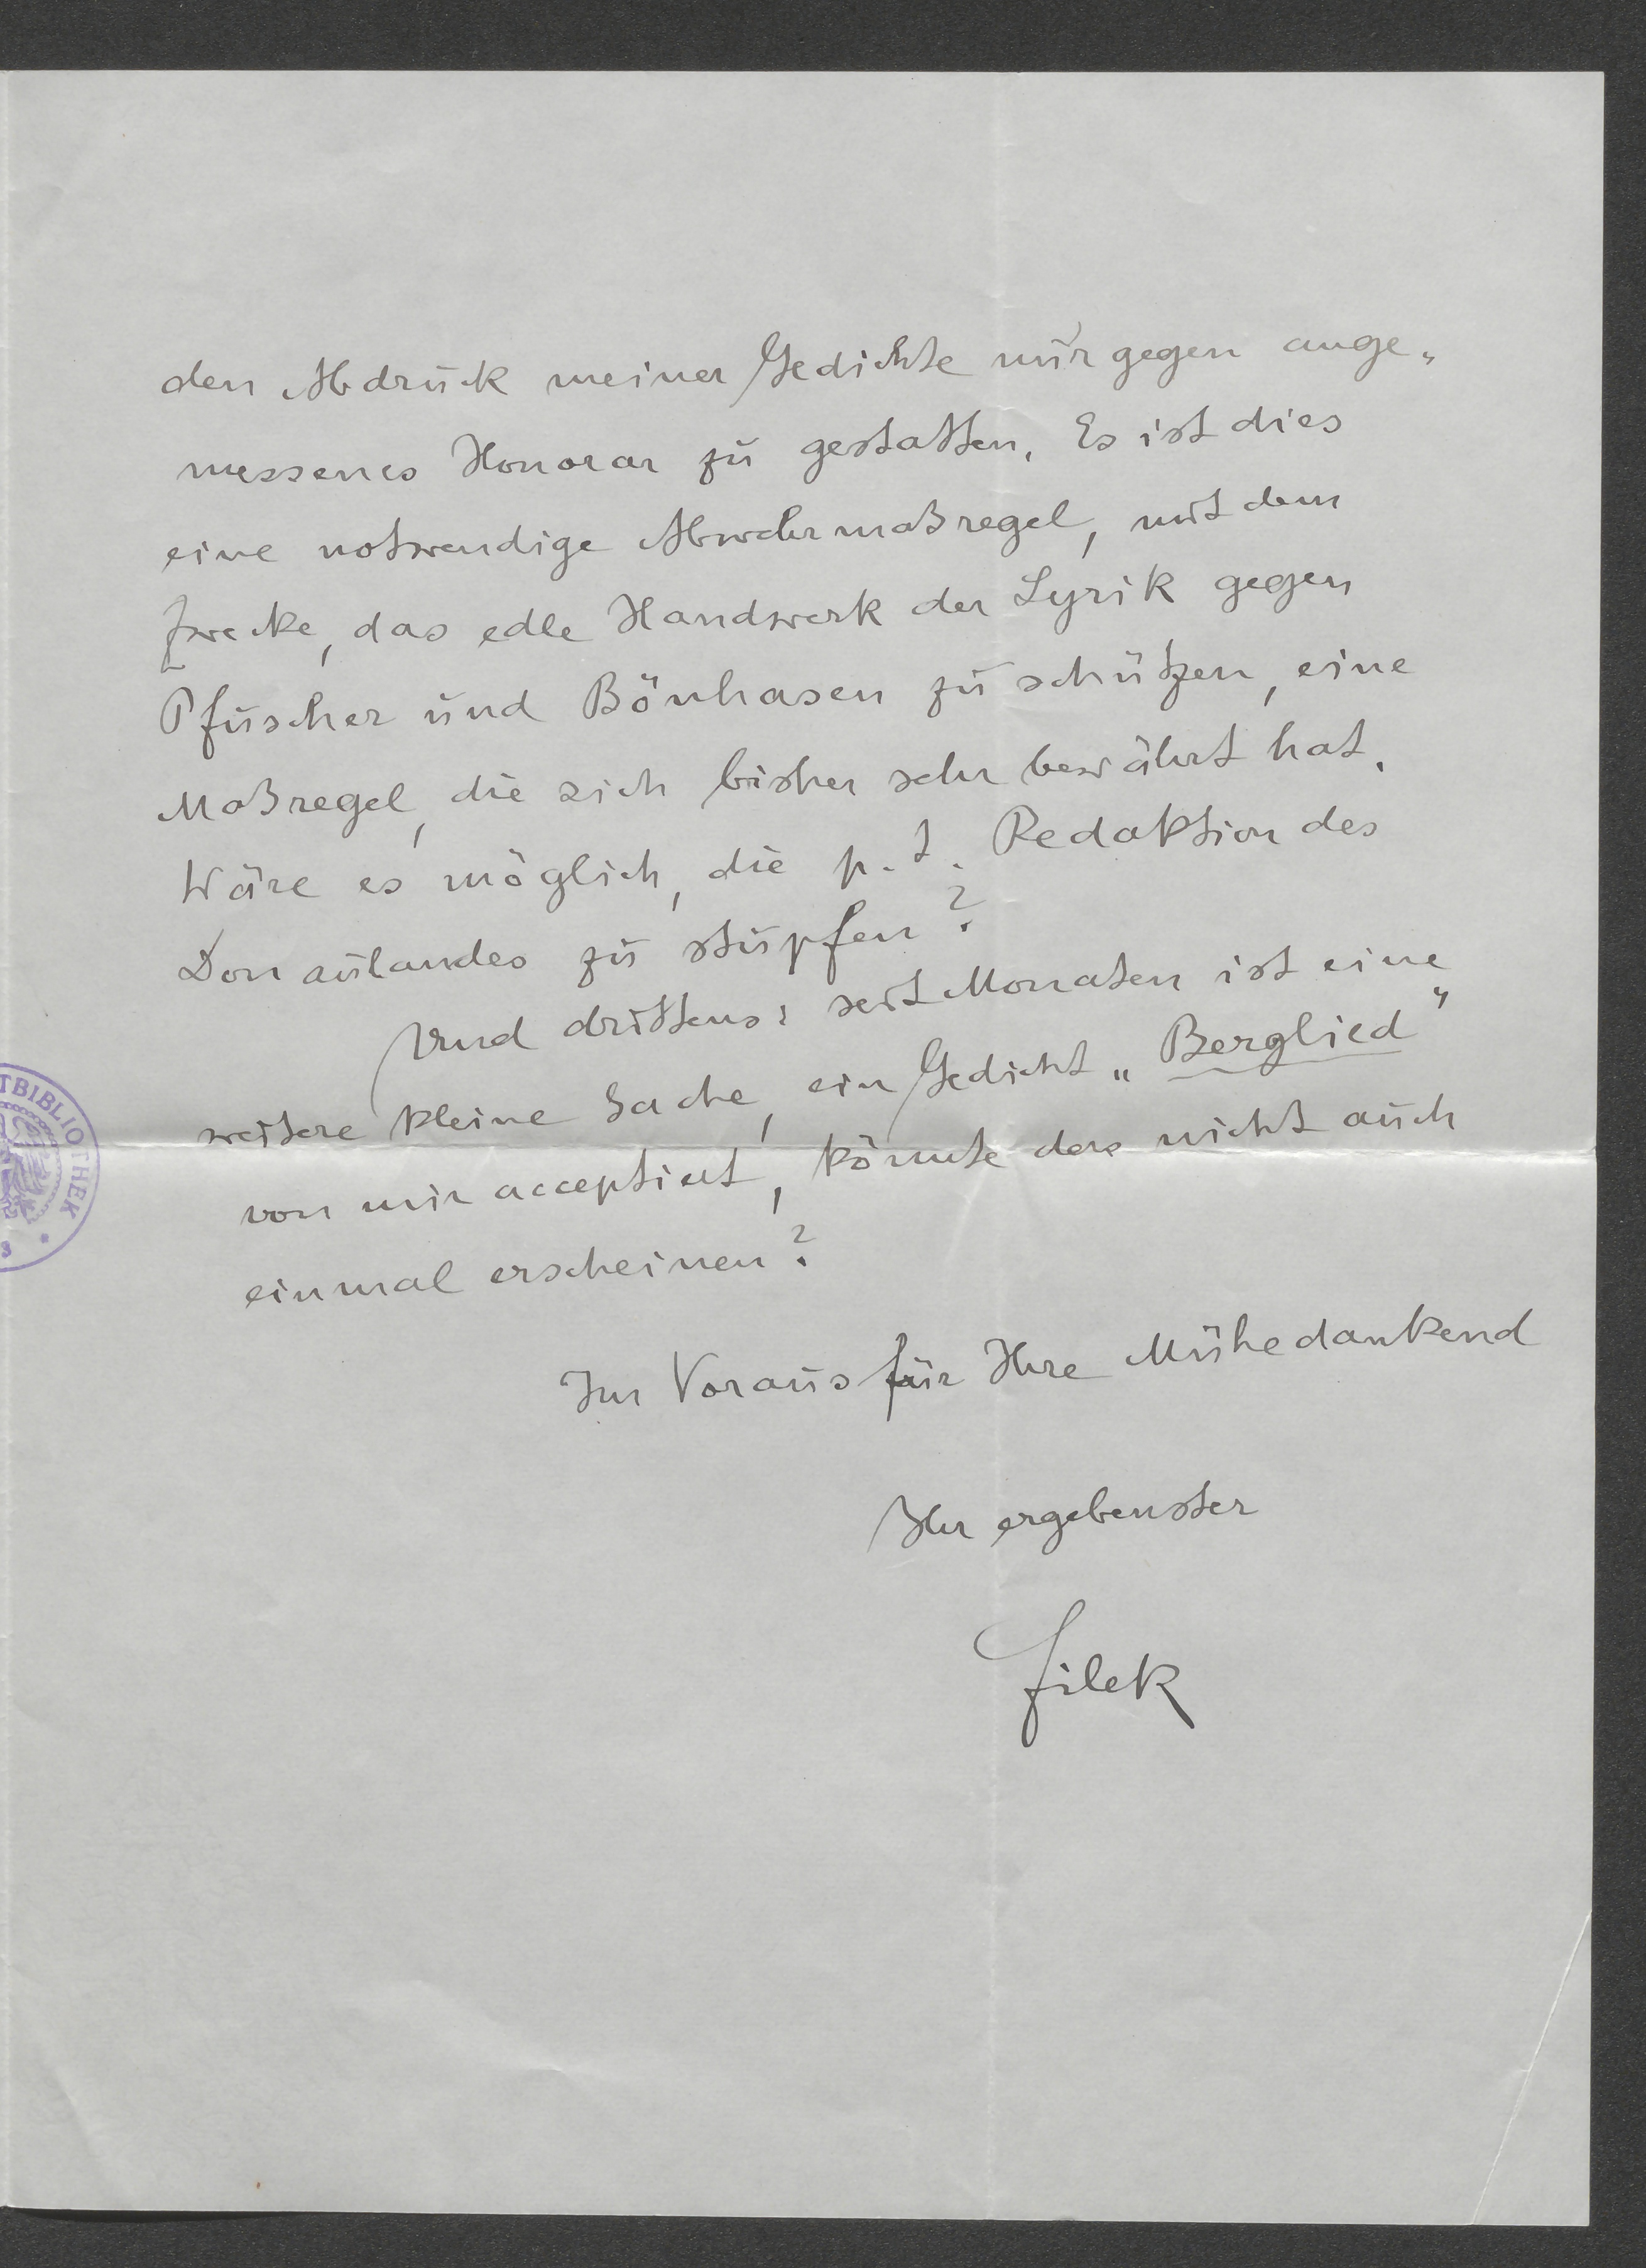 den Abdruck meiner Gedichte nur gegen ange„
messenes Honorar zu gestatten. Es ist dies
eine notwendige Abwehrmaßregel, mit dem
Zwecke, das edle Handwerk der Lyrik gegen
Pfuscher und Bönhasen zu schützen, eine
Maßregel, die sich bisher sehr bewährt hat.
Wäre es möglich, die p. t. Redaktion des
Donaulandes zu stupfen?
Und drittens: seit Monaten ist eine
weitere kleine Sache, ein Gedicht „Berglied"
von mir acceptiert, könnte das nicht auch
einmal erscheinen?
Im Voraus für Ihre Mühe dankend
Ihr ergebenster
Filek
TBIBLIOTHEK *